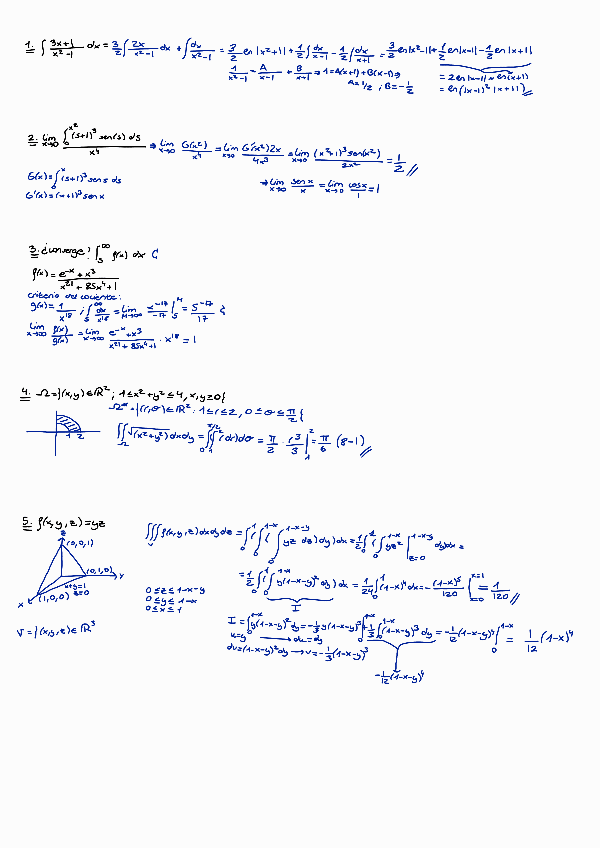 1. ∫ (3x+1)/(x²-1) dx = 3/2 ∫ 2x/(x²-1) dx + ∫ dx/(x²-1) = 3/2 en |x²+1| + 1/2 ∫ dx/(x-1) - 1/2 ∫ dx/(x+1) = 3/2 en|x²-1| + 1/2 en|x-1| - 1/2 en|x+1|
1/(x²-1) = A/(x-1) + B/(x-1) → 1 = A(x+1) + B(x-1) ⇒
= 2en|x-1| + en(x+1)
A = 1/2 ; B = -1/2
= en(|x-1|² |x+1|) //
2. lim x→0 ∫₀^x² (s+1)³ sen(s) ds / x⁴ ⇒ lim x→0 G(x²)/x⁴ = lim x→0 G'(x²)2x/4x³ = lim x→0 (x²+1)³ sen(x²)/2x² = 1/2 //
G(x) = ∫₀^x (s+1)³ sen s ds
⇒ lim x→0 sen x/x = lim x→0 cos x/1 = 1
G'(x) = (x+1)³ sen x
3. ¿converge? ∫₅^∞ f(x) dx C
f(x) = (e⁻ˣ + x³)/(x²¹ + 85x⁴ + 1)
criterio del cociente:
g(x) = 1/x¹⁸ ; ∫₅^∞ dx/x¹⁸ = lim M→∞ x⁻¹⁷/-17 |₅^M = 5⁻¹⁷/17 C
lim x→∞ f(x)/g(x) = lim x→∞ (e⁻ˣ + x³)/(x²¹ + 85x⁴ + 1) · x¹⁸ = 1
4. Ω = {(x,y) ∈ ℝ² ; 1 ≤ x² + y² ≤ 4, x,y ≥ 0}
Ω* = {(r,θ) ∈ ℝ² : 1 ≤ r ≤ 2, 0 ≤ θ ≤ π/2}
1 2
∬_Ω √(x²+y²) dx dy = ∫₀^π/2 ∫₁² r² dr) dθ = π/2 · r³/3 |₁² = π/6 (8-1) //
5. f(x,y,z) = yz
z
(0,0,1)
∭_V f(x,y,z) dx dy dz = ∫₀¹ ( ∫₀^1-x ( ∫₀^1-x-y yz dz) dy) dx = 1/2 ∫₀¹ ( ∫₀^1-x yz² |_z=0^1-x-y dy dx =
(0,1,0)
y
x+y=1
z=0
x
(1,0,0)
= 1/2 ∫₀¹ ( ∫₀^1-x y(1-x-y)² dy) dx = 1/24 ∫₀¹ (1-x)⁴ dx = - (1-x)⁵/120 |_x=0^x=1 = 1/120 //
0 ≤ z ≤ 1-x-y
0 ≤ y ≤ 1-x
0 ≤ x ≤ 1
I
V = {(x,y,z) ∈ ℝ³
I = ∫₀^1-x y(1-x-y)² dy = -1/3 y(1-x-y)³ |₀^1-x + 1/3 ∫₀^1-x (1-x-y)³ dy = -1/12 (1-x-y)⁴ |₀^1-x = 1/12 (1-x)⁴
u=y → du=dy
dv=(1-x-y)² dy → v = -1/3 (1-x-y)³
-1/12 (1-x-y)⁴